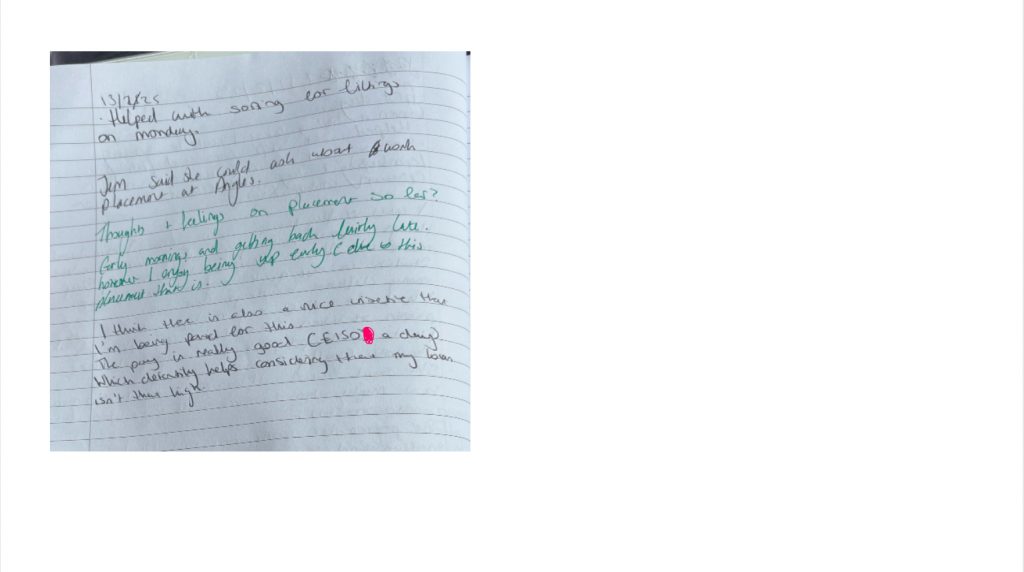 13/2/25
· Helped with soring for linings
on monday.
Jem said she could ask about work
placement at Angles.
Thoughts + feelings on placement so far?
Early mornings and getting back fairly late.
however I enjoy being up early (due to this
placement that is.
I think ther is also a nice insetive that
I'm being paid for this.
The pay is really good (£150 a day)
Which defenitly helps considering that my loan
isn't that high